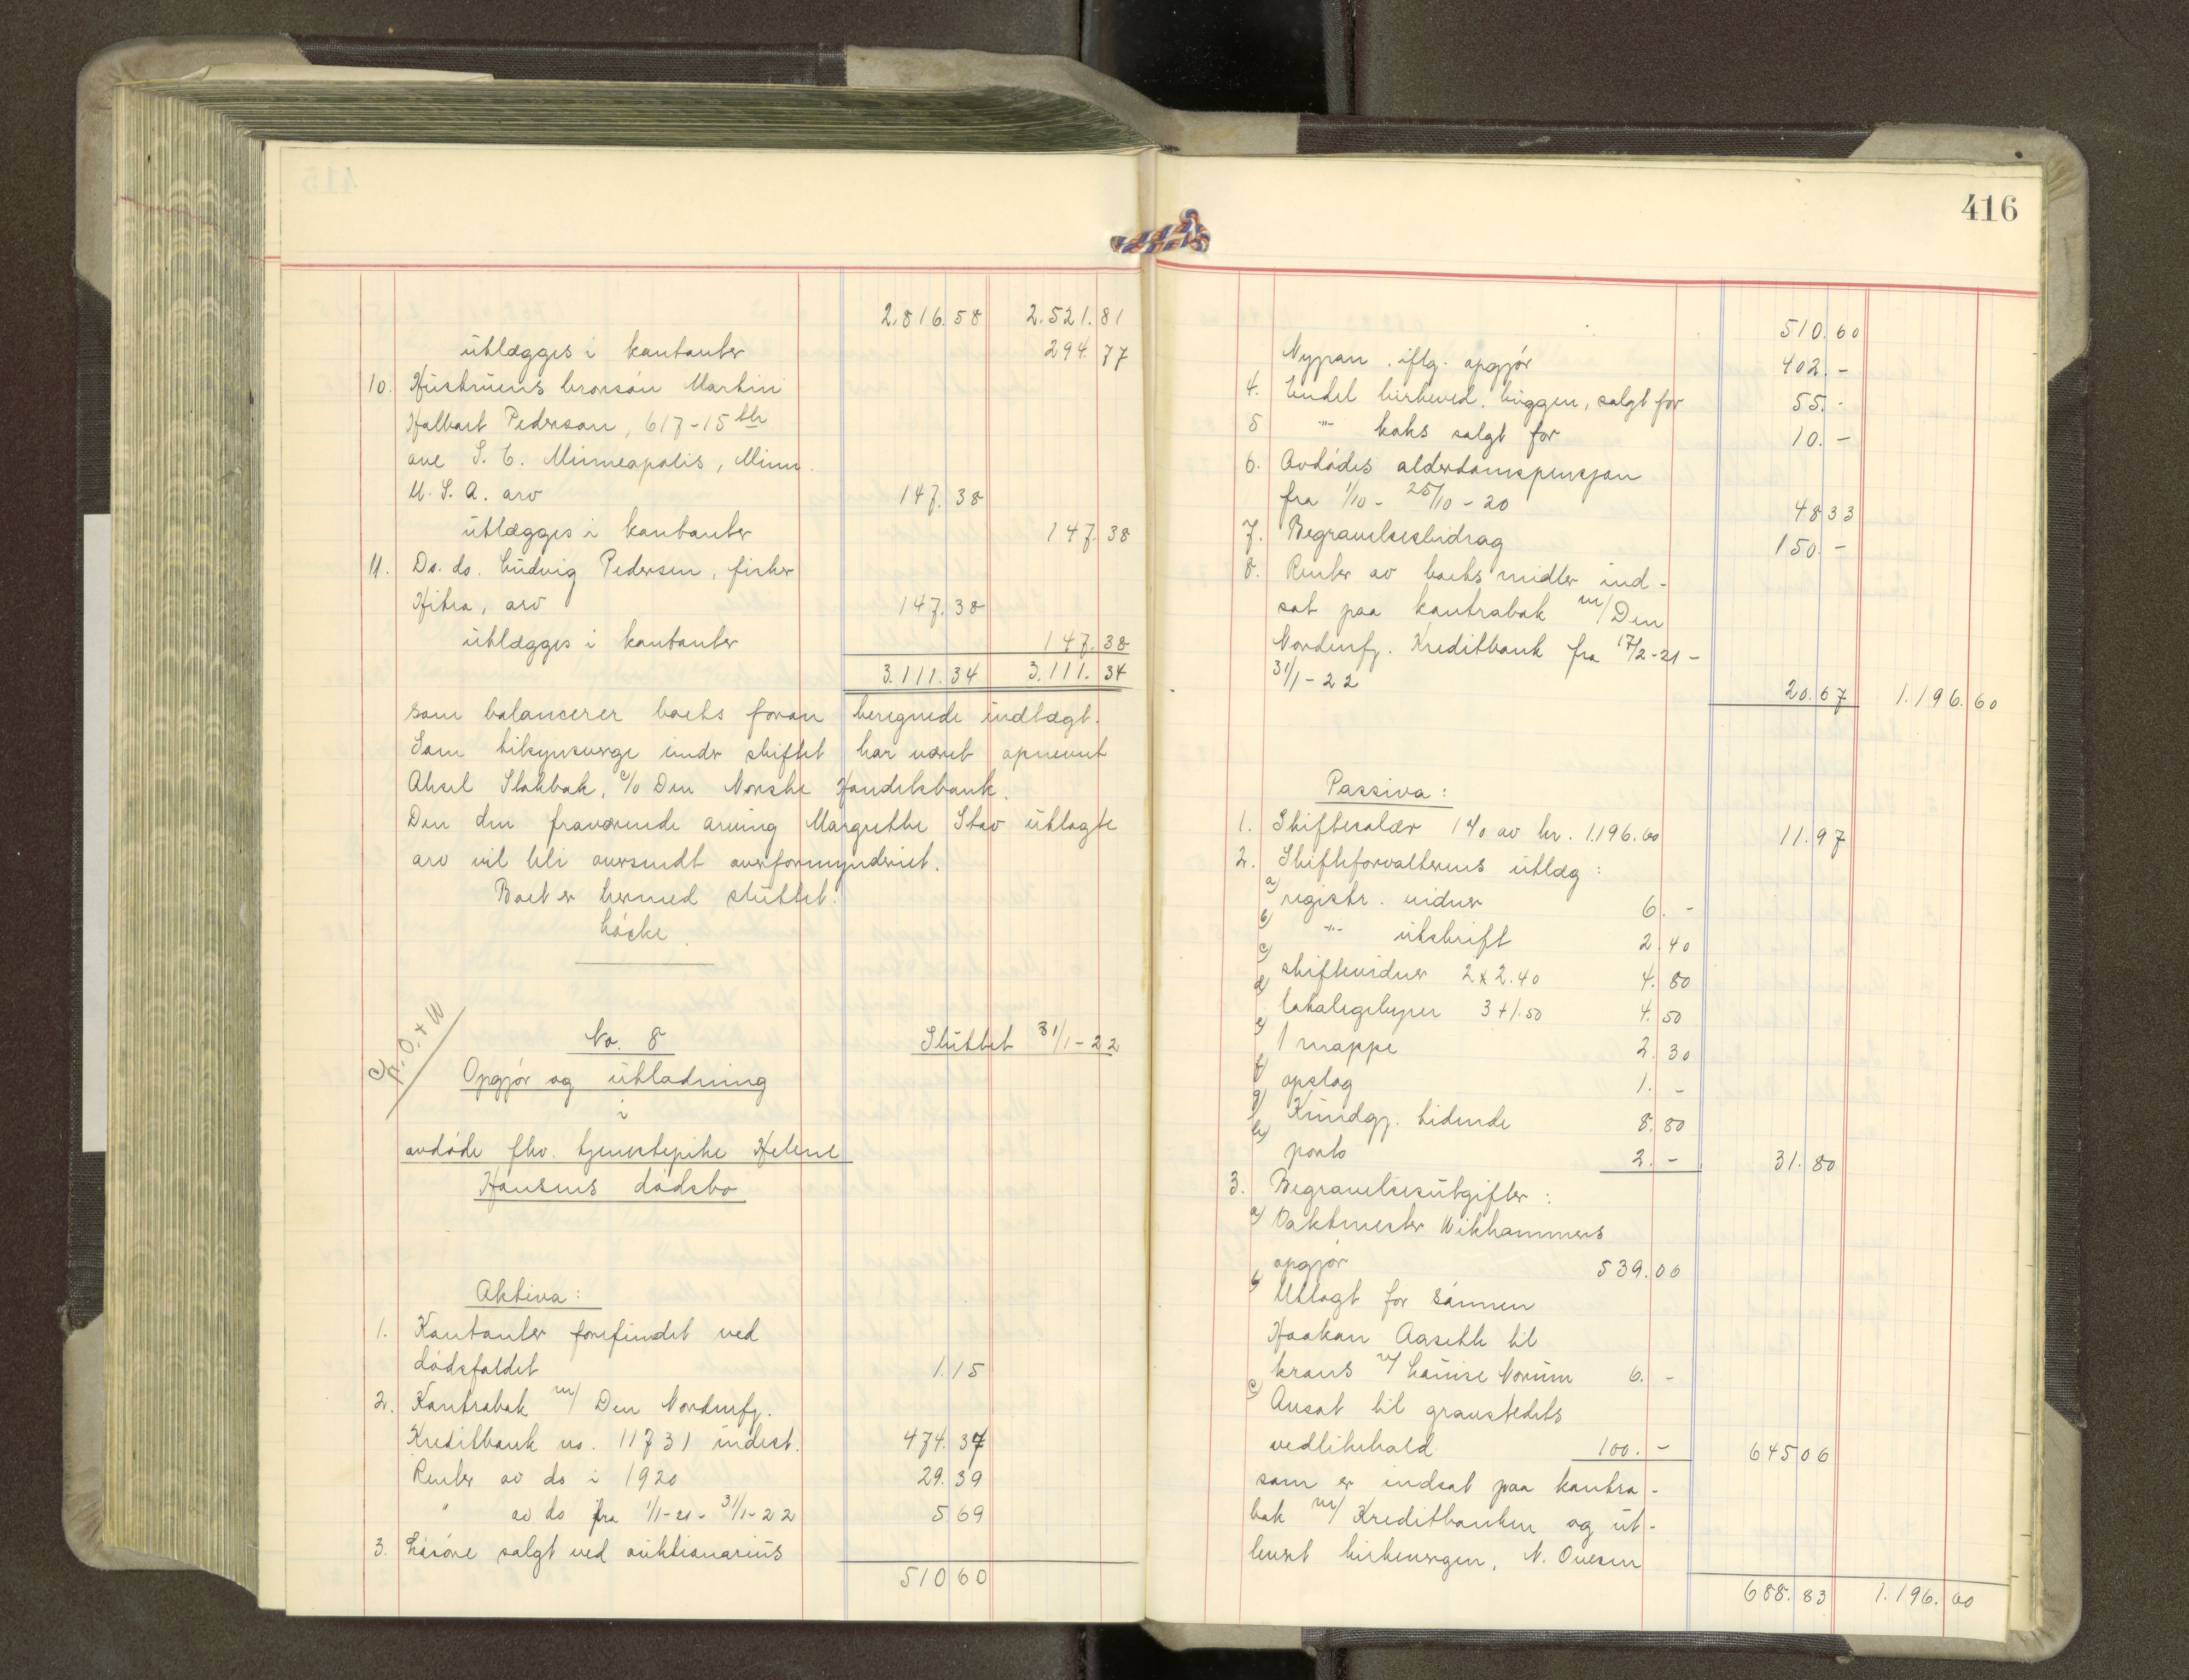 2.816.58 2.521.81
utlægges i kontanter 294.77
10. Hustruens brorsøn Martin
Halbart Pederson, 617-15 the
ave S. E. Minneapolis, Minn.
U. S. A. arv 147.38
utlægges i kontanter 147.38
11. Do. do. Ludvig Pedersen, fisker
Hitra, arv 147.38
utlægges i kontanter 147.38
3.111.34 3.111.34
som balancerer boets foran beregnede indtægt.
Som tilsynsverge under skiftet har været opnevnt
Aksel Stokbak, c/o Den Norske Handelsbank.
Den den fraværende arving Margrethe Stav utlagte
arv vil bli oversendt overformynderiet.
Boet er hermed sluttet.
Løcke
No. 8 Sluttet 31/1-22
Opgjør og utlodning
i
avdøde fhv. tjenestepike Helene
Hansens dødsbo
Aktiva:
1. Kontanter forefundet ved
dødsfaldet 1.15
2. Kontrabok m/ Den Nordenfj.
Kreditbank no. 11731 indest. 474.37
Renter av do i 1920 29.39
" av do fra 1/1-21 - 31/1-22 5.69
3. Løsøre solgt ved auktionarius
510.60
416
510.60
Nypan. iflg. opgjør 402.-
4. Endel birkeved. huggen, solgt for 55.-
5 -"- koks solgt for 10.-
6. Avdødes alderdomspensjon
fra 1/10 - 25/10-20 48.33
7. Begravelsesbidrag 150.-
8. Renter av boets midler ind-
sat paa kontrabok m/ Den
Nordenfj. Kreditbank fra 17/2-21 -
31/1-22 20.67 1.196.60
Passiva:
1. Skiftesalær 1% av kr. 1.196.60 11.97
2. Skifteforvalterens utlæg:
a) registr. vidner 6.-
b) -"- utskrift 2.40
c) skiftevidner 2x2.40 4.80
d) lokalegebyrer 3+1.50 4.50
e) 1 mappe 2.30
f) opslag 1.-
g) Kundgj. tidende 8.80
h) porto 2.- 31.80
3. Begravelsesutgifter:
a) Vaktmester Wikhammers
opgjør 539.06
b) Utlagt for sønnen
Haakon Aaseth til
krans v/ Louise Norum 6.-
c) Avsat til gravstedets
vedlikehold 100.- 645.06
som er indsat paa kontra-
bok m/ Kreditbanken og ut-
levert kirkevergen, N. Ovesen
688.83 1.196.60